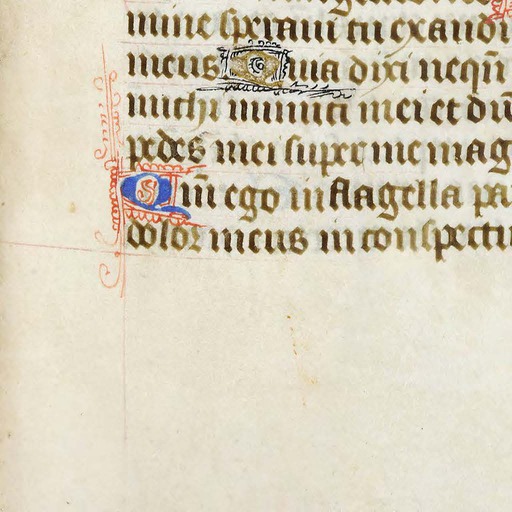 mine speraui tu exaudi
meus Quia dixi nequn̄
michi inimici mei et dū
pedes mei super me mag
Qm̄ ego in flagella pa
dolor meus in conspectu